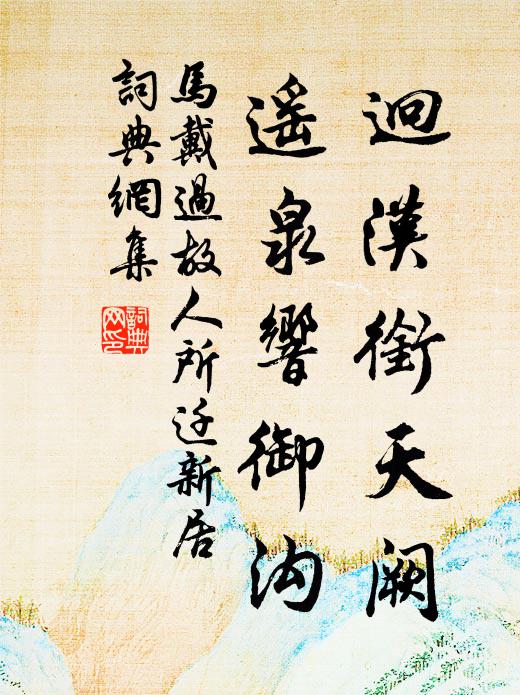 迥漢銜天闕
遥泉響御沟
馬戴過故人所迁新居
詞典網集
詞典网印